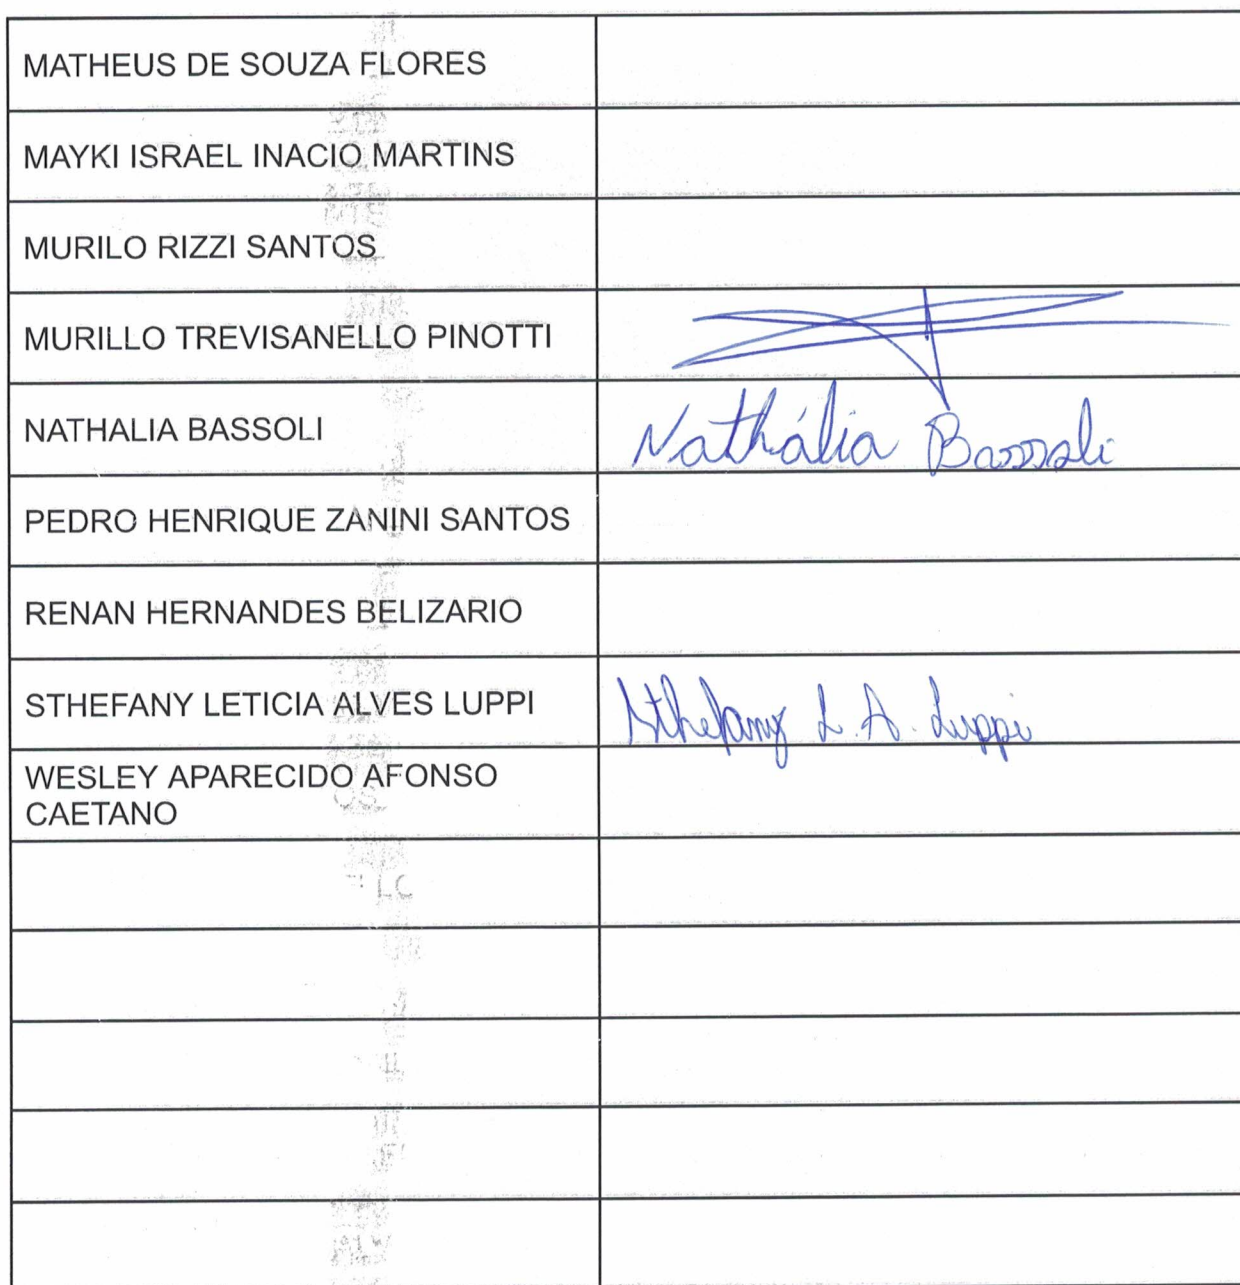 MATHEUS DE SOUZA FLORES
MAYKI ISRAEL INACIO MARTINS
MURILO RIZZI SANTOS
MURILLO TREVISANELLO PINOTTI
NATHALIA BASSOLI
Nathália Bassoli
PEDRO HENRIQUE ZANINI SANTOS
RENAN HERNANDES BELIZARIO
STHEFANY LETICIA ALVES LUPPI
Sthefany L. A. Luppi
WESLEY APARECIDO AFONSO
CAETANO